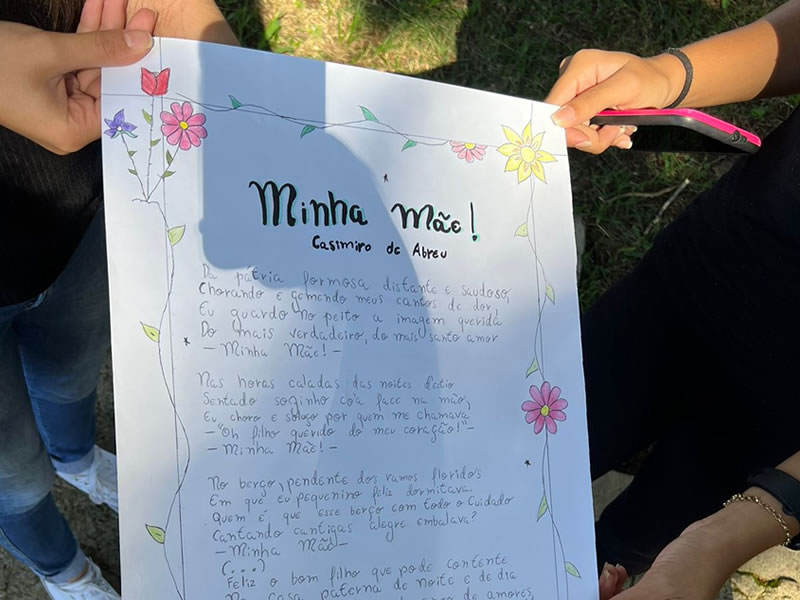 Minha Mãe!
Casimiro de Abreu
Da pátria formosa distante e saudoso,
Chorando e gemendo meus cantos de dor,
Eu guardo no peito a imagem querida
Do mais verdadeiro, do mais santo amor
— Minha Mãe! —
Nas horas caladas das noites d'estio
Sentado sozinho co'a face na mão,
Eu choro e soluço por quem me chamava
— "Oh filho querido do meu coração!" —
— Minha Mãe! —
No berço, pendente dos ramos floridos
Em que eu pequenino feliz dormitava.
Quem é que esse berço com todo o cuidado
Cantando cantigas alegre embalava?
— Minha Mãe —
(...)
Feliz o bom filho que pode contente
Na casa paterna de noite e de dia
de amores,